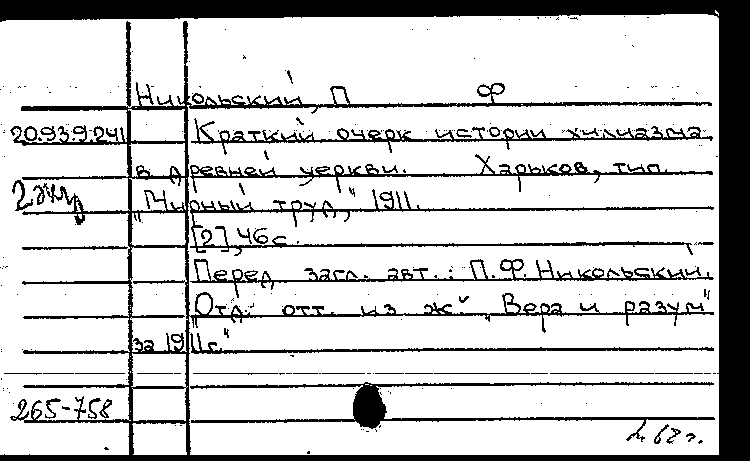 Никольский, П Ф
20.93.9.241 Краткий очерк истории хилиазма
в древней церкви. Харьков, тип.
2 экз „Мирный труд," 1911.
[2], 46 с.
Перед загл. авт.: П.Ф. Никольский.
„Отд. отт. из ж „Вера и разум"
за 1911 г."
265-758
68 г.